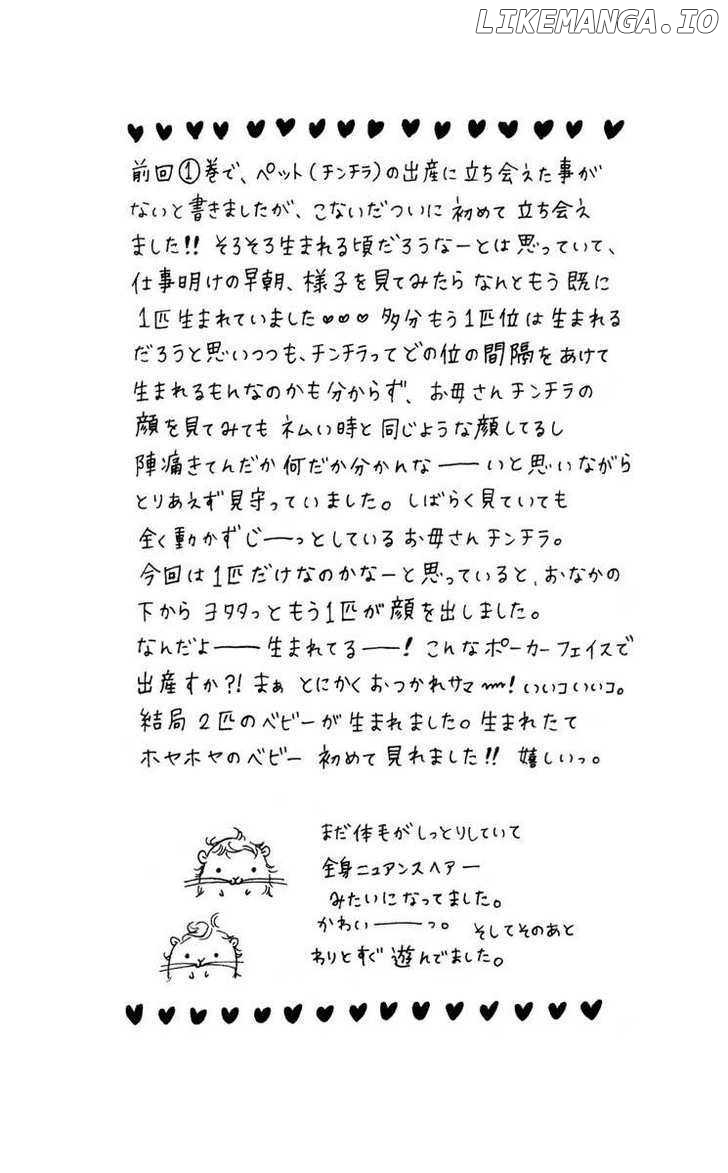 LIKEMANGA.IO
前回①巻で、ペット(チンチラ)の出産に立ち会えた事が
ないと書きましたが、こないだついに初めて立ち会え
ました!! そろそろ生まれる頃だろうなーとは思っていて、
仕事明けの早朝、様子を見てみたらなんともう既に
1匹生まれていました♡♡♡ 多分もう1匹位は生まれる
だろうと思いつつも、チンチラってどの位の間隔をあけて
生まれるもんなのかも分からず、お母さんチンチラの
顔を見てみてもネムい時と同じような顔してるし
陣痛きてんだか何だか分かんな――いと思いながら
とりあえず見守っていました。しばらく見ていても
全く動かずじ――っとしているお母さんチンチラ。
今回は1匹だけなのかなーと思っていると、おなかの
下からヨタタっともう1匹が顔を出しました。
なんだよ――生まれてる――! こんなポーカーフェイスで
出産すか?! まぁ とにかくおつかれサマ〰! いいコいいコ。
結局2匹のベビーが生まれました。生まれたて
ホヤホヤのベビー 初めて見れました!! 嬉しいっ。
まだ体毛がしっとりしていて
全身ニュアンスヘアー
みたいになってました。
かわい――っ。 そしてそのあと
わりとすぐ遊んでました。